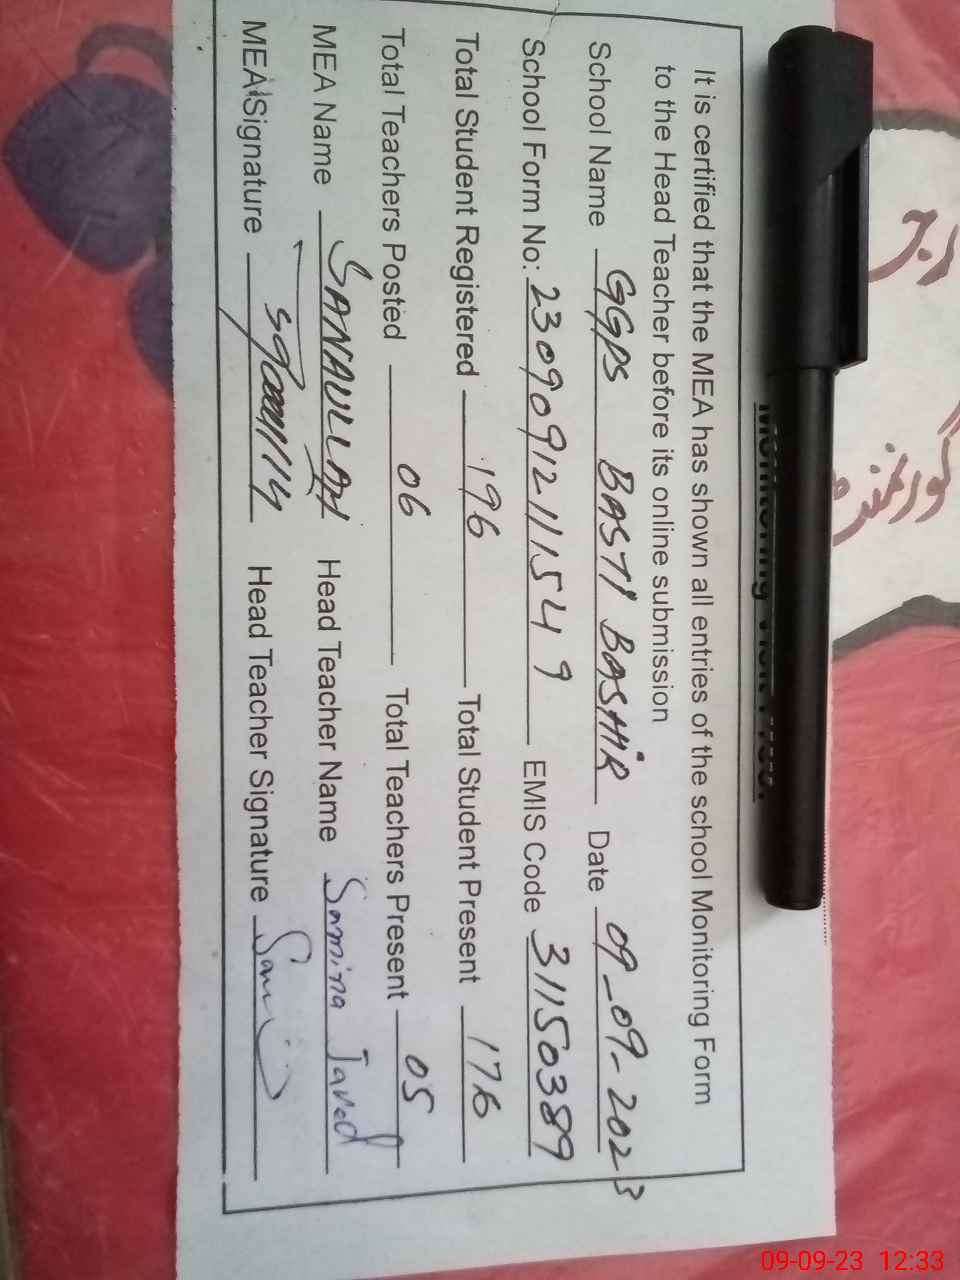 It is certified that the MEA has shown all entries of the school Monitoring Form
to the Head Teacher before its online submission
School Name GGPS BASTI BASHIR Date 09-09-2023
School Form No: 23090912111549 EMIS Code 31150389
Total Student Registered 196 Total Student Present 176
Total Teachers Posted 06 Total Teachers Present 05
MEA Name SANAULLAH Head Teacher Name Samina Javed
MEA Signature Head Teacher Signature
گورنمنٹ
09-09-23 12:33